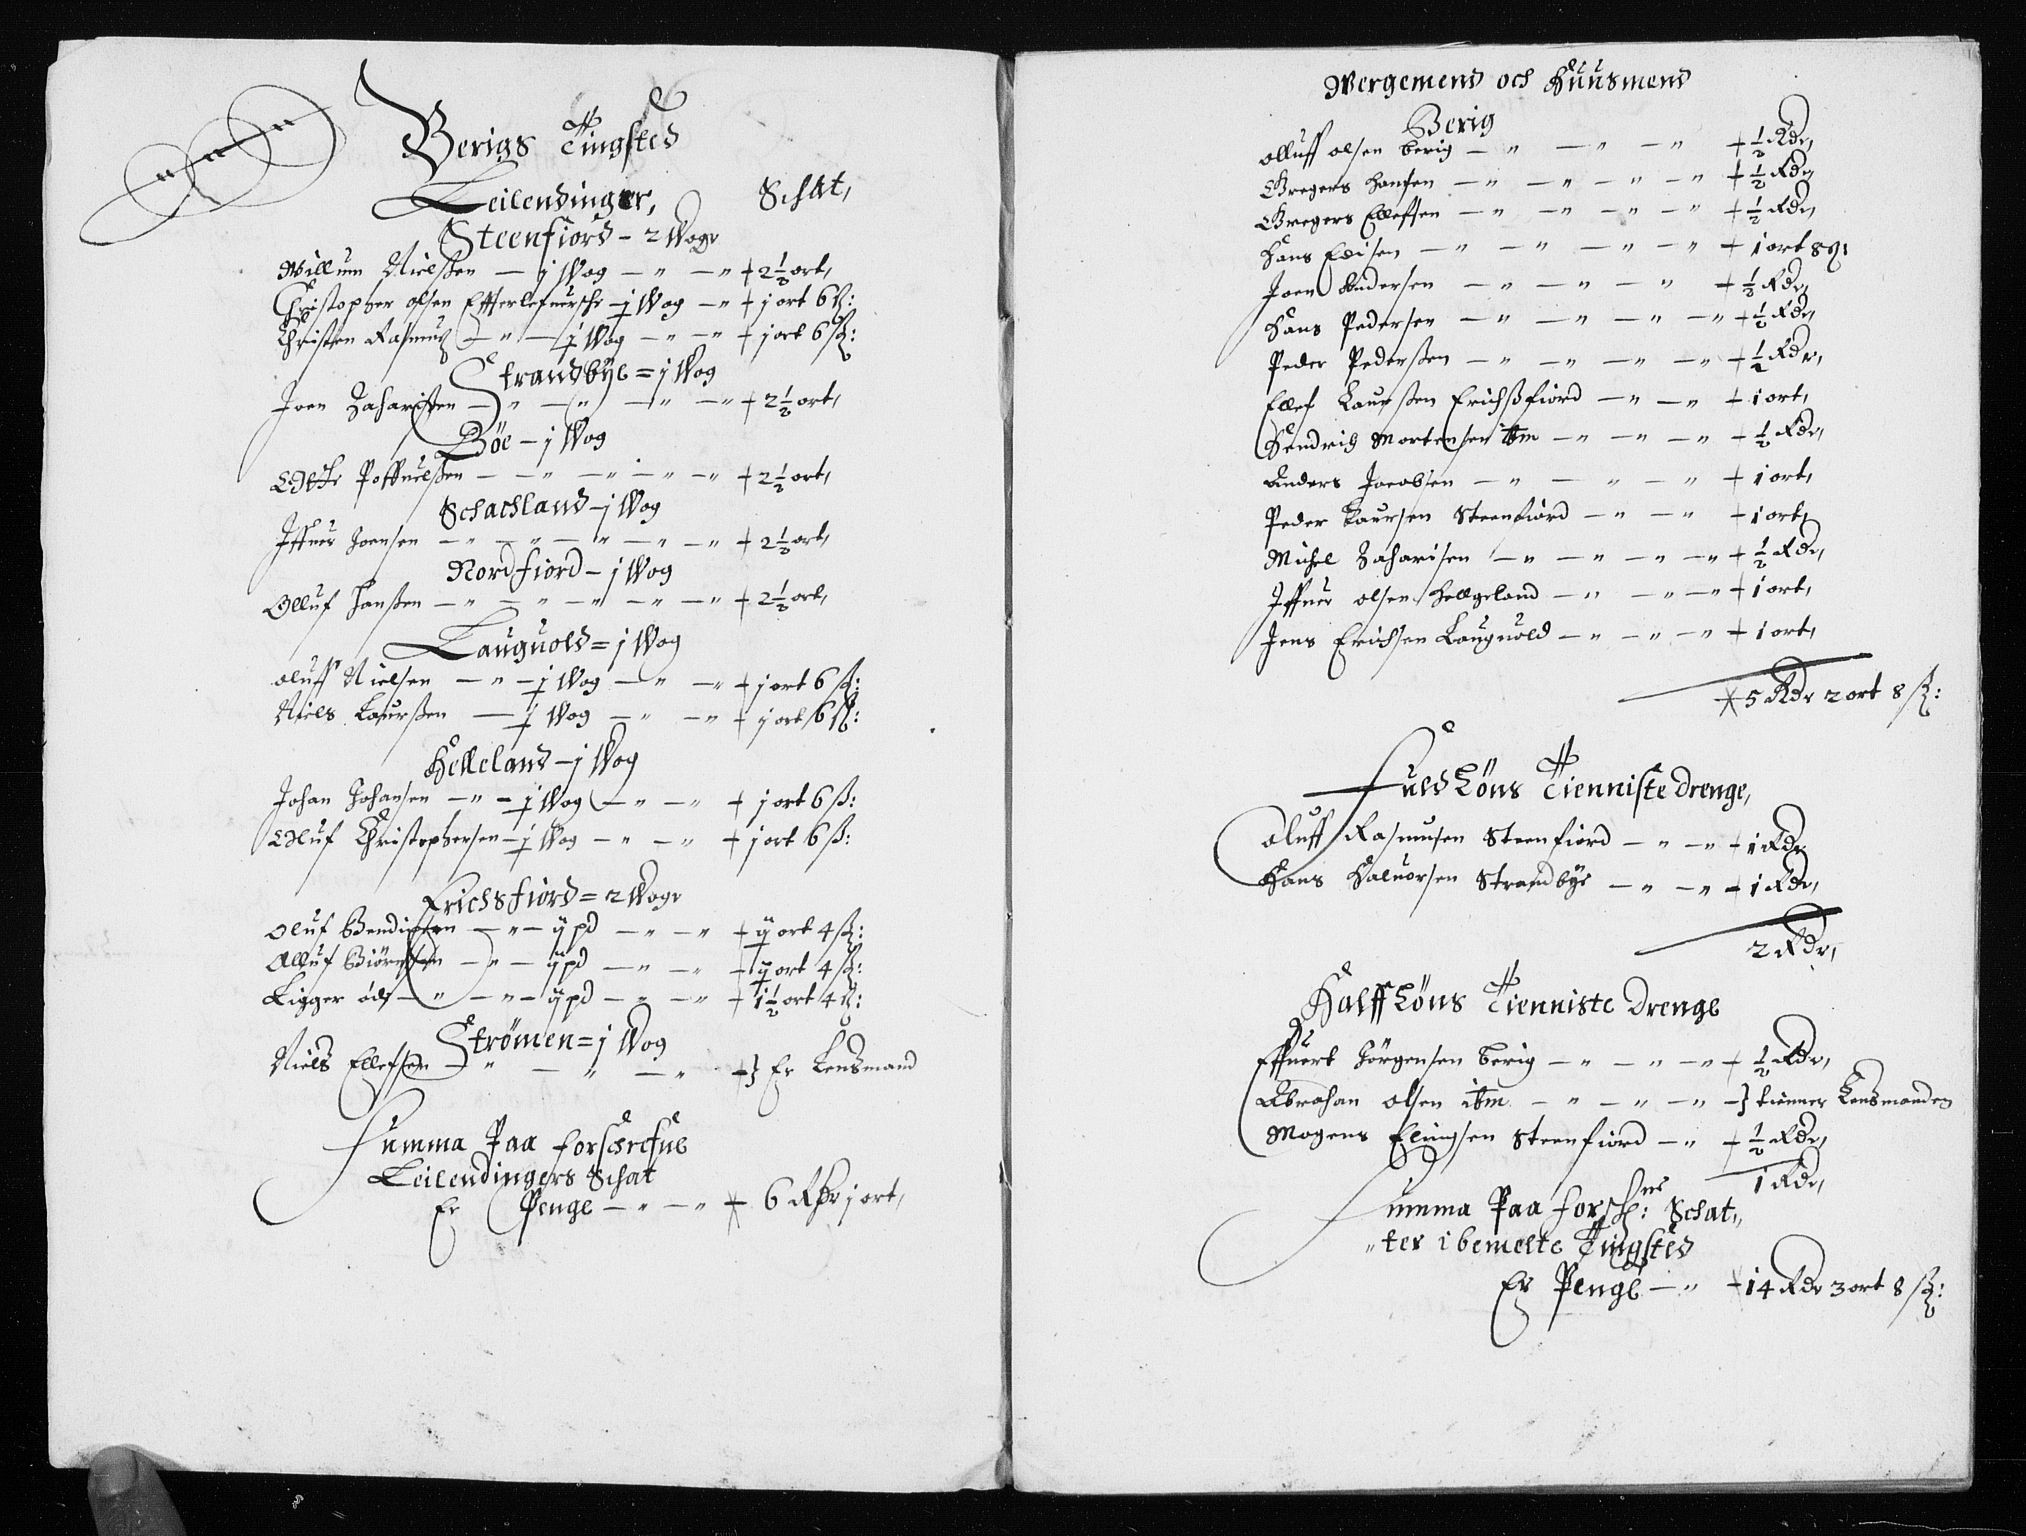 Berigs Tingsted
Leilendinger, Schat,
Steenfiord - 2 Wogr
Willum Nielßen - j Wog - " - " + 2½ ort,
Christopher olsen Efterlefuersche - j Wog - " + j ort 6 ß:
Christen Rasmus - " - j Wog - " - " + j ort 6 ß:
Strandbye = j Wog
Joen Zacharißen - " - " - " - " + 2½ ort,
Böe - j Wog
Poffuelßen - " - " - " - " + 2½ ort,
Schachland - j Wog
Iffuer Joensen - " - " - " - " + 2½ ort,
Nordfiord - j Wog
Olluf Hanßen - " - " - " - " - " + 2½ ort,
Lauguold = j Wog
oluff Nielsen - " - j Wog - " - " + j ort 6 ß:
Niels Laurßen - j Wog - " - " + j ort 6 ß:
Helleland - j Wog
Johan Johansen - " - j Wog - " - " + j ort 6 ß:
Olluf Christophersen - j Wog - " - " + j ort 6 ß:
Erichsfiord = 2 Wogr
Oluf Bendixsen - " - ij pd - " - " + ij ort 4 ß:
Olluf Biörnsen - " - ij pd - " - " + ij ort 4 ß:
Ligger öde - " - " - ij pd - " - " + 1½ ort 4 ß:
Strömen = j Wog
Niels Ellefsen - " - " - " +} Er Lensmand
Summa Paa forschrefne
Leilendingers Schat
Er Penge - " - " + 6 Rdr j ort,
Wergemend och Huusmend
Berig
olluff olsen berig - " - " - " + ½ Rdr,
Gregers Hansen - " - " - " - " + ½ Rdr,
Gregers Ellefsen - " - " - " - " + ½ Rdr,
Hans Edisen - " - " - " - " + 1 ort 8 ß:
Joen Andersen - " - " - " + ½ Rdr,
Hans Pedersen - " - " - " - " + ½ Rdr,
Peder Pederßen - " - " - " - " + ½ Rdr,
Ellef Laurßen Erichßfiord - " - " + 1 ort,
Hendrich Mortensen ibm - " - " - " + ½ Rdr,
Anders Jacobsen - " - " - " + 1 ort,
Peder Laursen Steenfiord - " - " + 1 ort,
Michel Zacharisen - " - " - " - " + ½ Rdr,
Iffuer olsen Hellgeland - " - " - " + 1 ort,
Jens Erichsen Lauguold - " - " - " + 1 ort,
5 Rdr 2 ort 8 ß:
Fuld Löns Tienniste drenge,
Oluff Rasmusen Steenfiord - " - " + 1 Rdr
Hans Haluorsen Strandbye - " - " + 1 Rdr,
2 Rdr,
Halff Löns Tienniste Drenge
Effuert Jörgensen berig - " - " - " + ½ Rdr,
Abraham olsen ibm - " - " - " +} tienner Lensmanden
Mogens Elingsen Steenfiord - " + ½ Rdr,
1 Rdr,
Summa Paa forschne: Schat„
„ter i bemelte Tingsted
Er Penge - " + 14 Rdr 3 ort 8 ß: